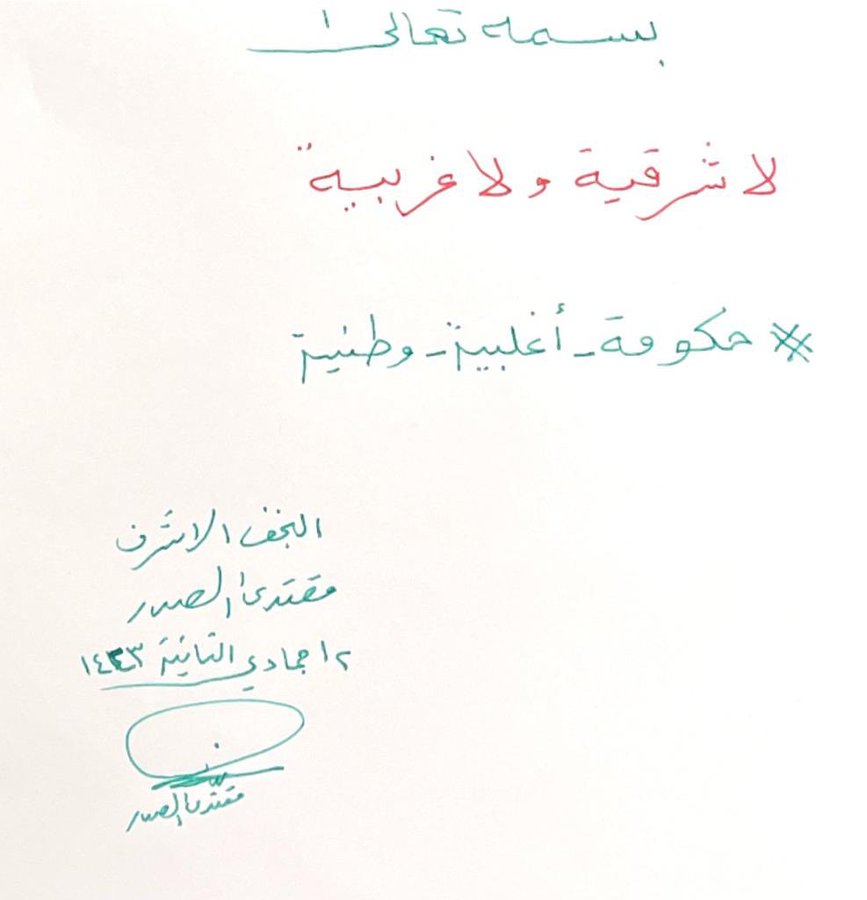 بسمه تعالى
لا شرقية ولا غربية
حكومة - أغلبية - وطنية
النجف الاشرف
مقتدى الصدر
١٢ جمادي الثانية ١٤٤٣
مقتدى الصدر